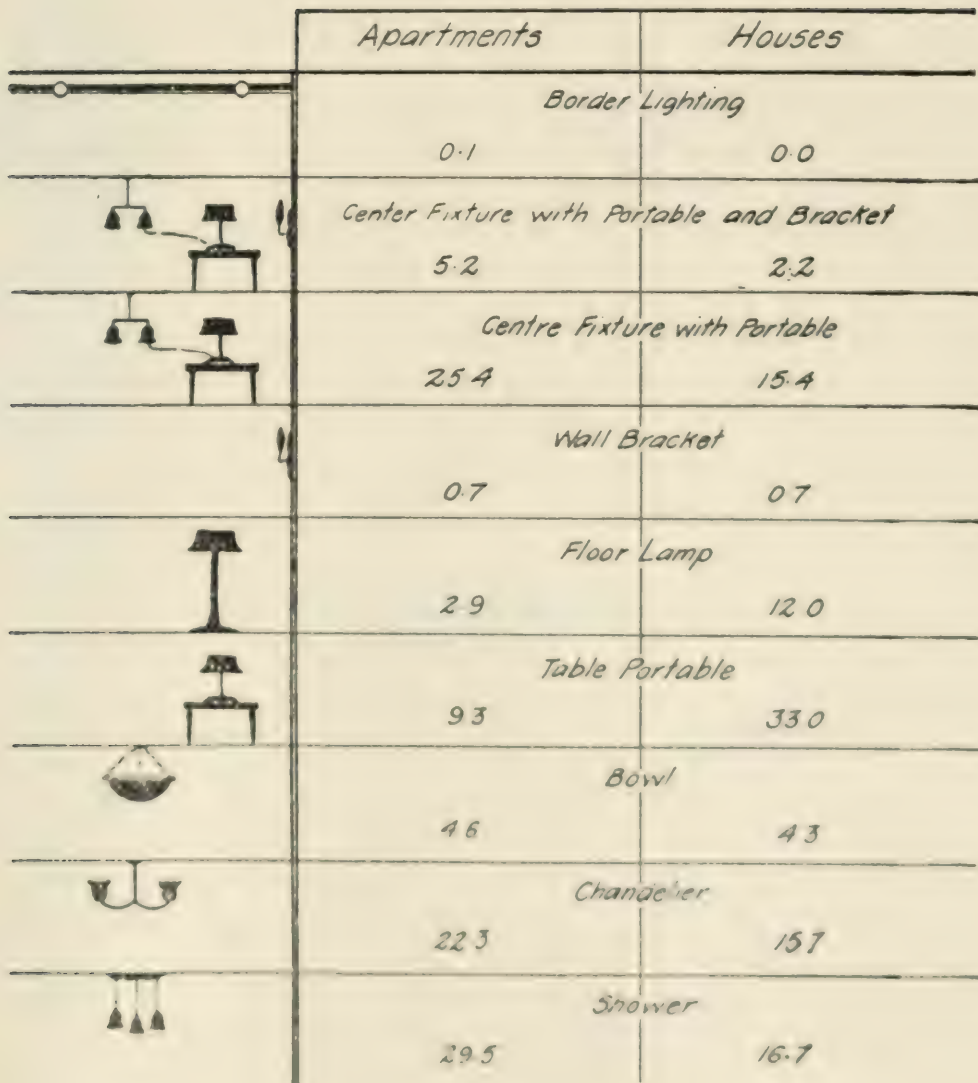 Apartments Houses
Border Lighting
0.1 0.0
Center Fixture with Portable and Bracket
5.2 2.2
Centre Fixture with Portable
25.4 15.4
Wall Bracket
0.7 0.7
Floor Lamp
2.9 12.0
Table Portable
9.3 33.0
Bowl
4.6 4.3
Chandelier
22.3 15.7
Shower
29.5 16.7